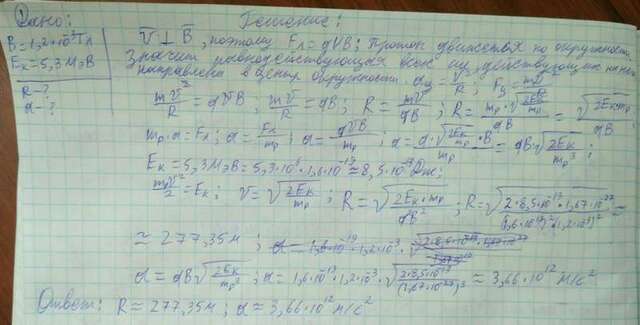 ① Дано:
Решение:
B=1,2·10⁻³Тл
Eк=5,3МэВ
R-?
a-?
V̄⊥B̄, поэтому Fл=qVB; Протон движется по окружности.
Значит равнодействующая всех сил, действующих на него
направлена в центр окружности. aу=V²/R; Fу=mV²/R
mV²/R=qVB; mV/R=qB; R=mV/qB; R=mр·√(2Eк/mр)/qB=√(2Eкmр)/qB
mр·a=Fл; a=Fл/mр; a=qVB/mр; a=q·√(2Eк/mр)·B/mр=qB√(2Eк/mр³);
Eк=5,3МэВ=5,3·10⁶·1,6·10⁻¹⁹≈8,5·10⁻¹³Дж;
mрV²/2=Eк; V=√(2Eк/mр); R=√(2Eк·mр/qB²); R=√(2·8,5·10⁻¹³·1,67·10⁻²⁷/(1,6·10⁻¹⁹)²(1,2·10⁻³)²)=
≈277,35м;
a=qB√(2Eк/mр³); a=1,6·10⁻¹⁹·1,2·10⁻³·√(2·8,5·10⁻¹³/(1,67·10⁻²⁷)³)≈3,66·10¹²м/с²
Ответ: R≈277,35м; a≈3,66·10¹²м/с²